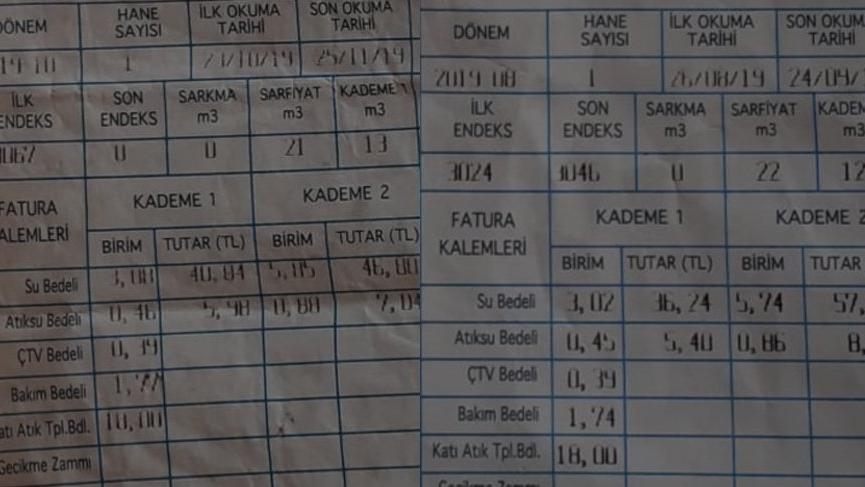 DÖNEM HANE SAYISI İLK OKUMA TARİHİ SON OKUMA TARİHİ
1 25/11/19
İLK ENDEKS SON ENDEKS SARKMA m3 SARFİYAT m3 KADEME 1 m3
3067 0 0 21 13
FATURA KALEMLERİ KADEME 1 KADEME 2
BİRİM TUTAR (TL) BİRİM TUTAR (TL)
Su Bedeli 40,84
Atıksu Bedeli 0,46 5,98 0,88 7,04
ÇTV Bedeli 0,39
Bakım Bedeli 1,77
Katı Atık Tpl.Bdl.
Gecikme Zammı
DÖNEM HANE SAYISI İLK OKUMA TARİHİ SON OKUMA TARİHİ
2019-08 1 26/08/19 24/09/
İLK ENDEKS SON ENDEKS SARKMA m3 SARFİYAT m3 KADEM m3
3024 3046 0 22 12
FATURA KALEMLERİ KADEME 1 KADEME 2
BİRİM TUTAR (TL) BİRİM TUTAR
Su Bedeli 3,02 36,24 5,74 57,
Atıksu Bedeli 0,45 5,40 0,86 8,
ÇTV Bedeli 0,39
Bakım Bedeli 1,74
Katı Atık Tpl.Bdl. 18,00
Gecikme Zammı